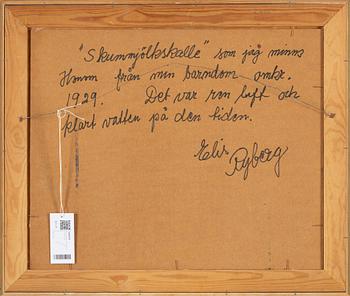 "Skummjölkskalle" som jag minns
Honom från min barndom omkr.
1929. Det var ren luft och
klart vatten på den tiden.
Elis
Ryberg